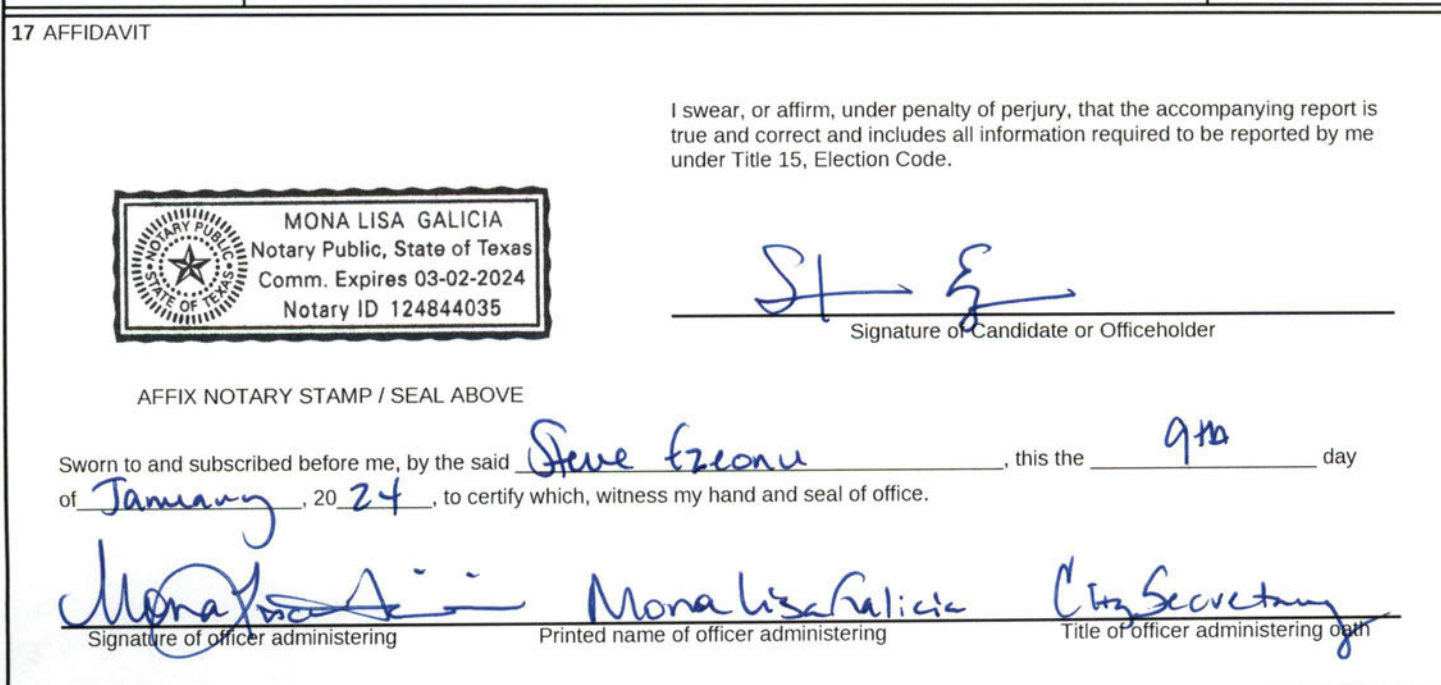 17 AFFIDAVIT
I swear, or affirm, under penalty of perjury, that the accompanying report is
true and correct and includes all information required to be reported by me
under Title 15, Election Code.
NOTARY PUBLIC
STATE OF TEXAS
MONA LISA GALICIA
Notary Public, State of Texas
Comm. Expires 03-02-2024
Notary ID 124844035
Signature of Candidate or Officeholder
AFFIX NOTARY STAMP / SEAL ABOVE
Sworn to and subscribed before me, by the said Steve Ezeonu, this the 9th day
of January, 2024, to certify which, witness my hand and seal of office.
Mona Lisa Galicia City Secretary
Signature of officer administering Printed name of officer administering Title of officer administering oath